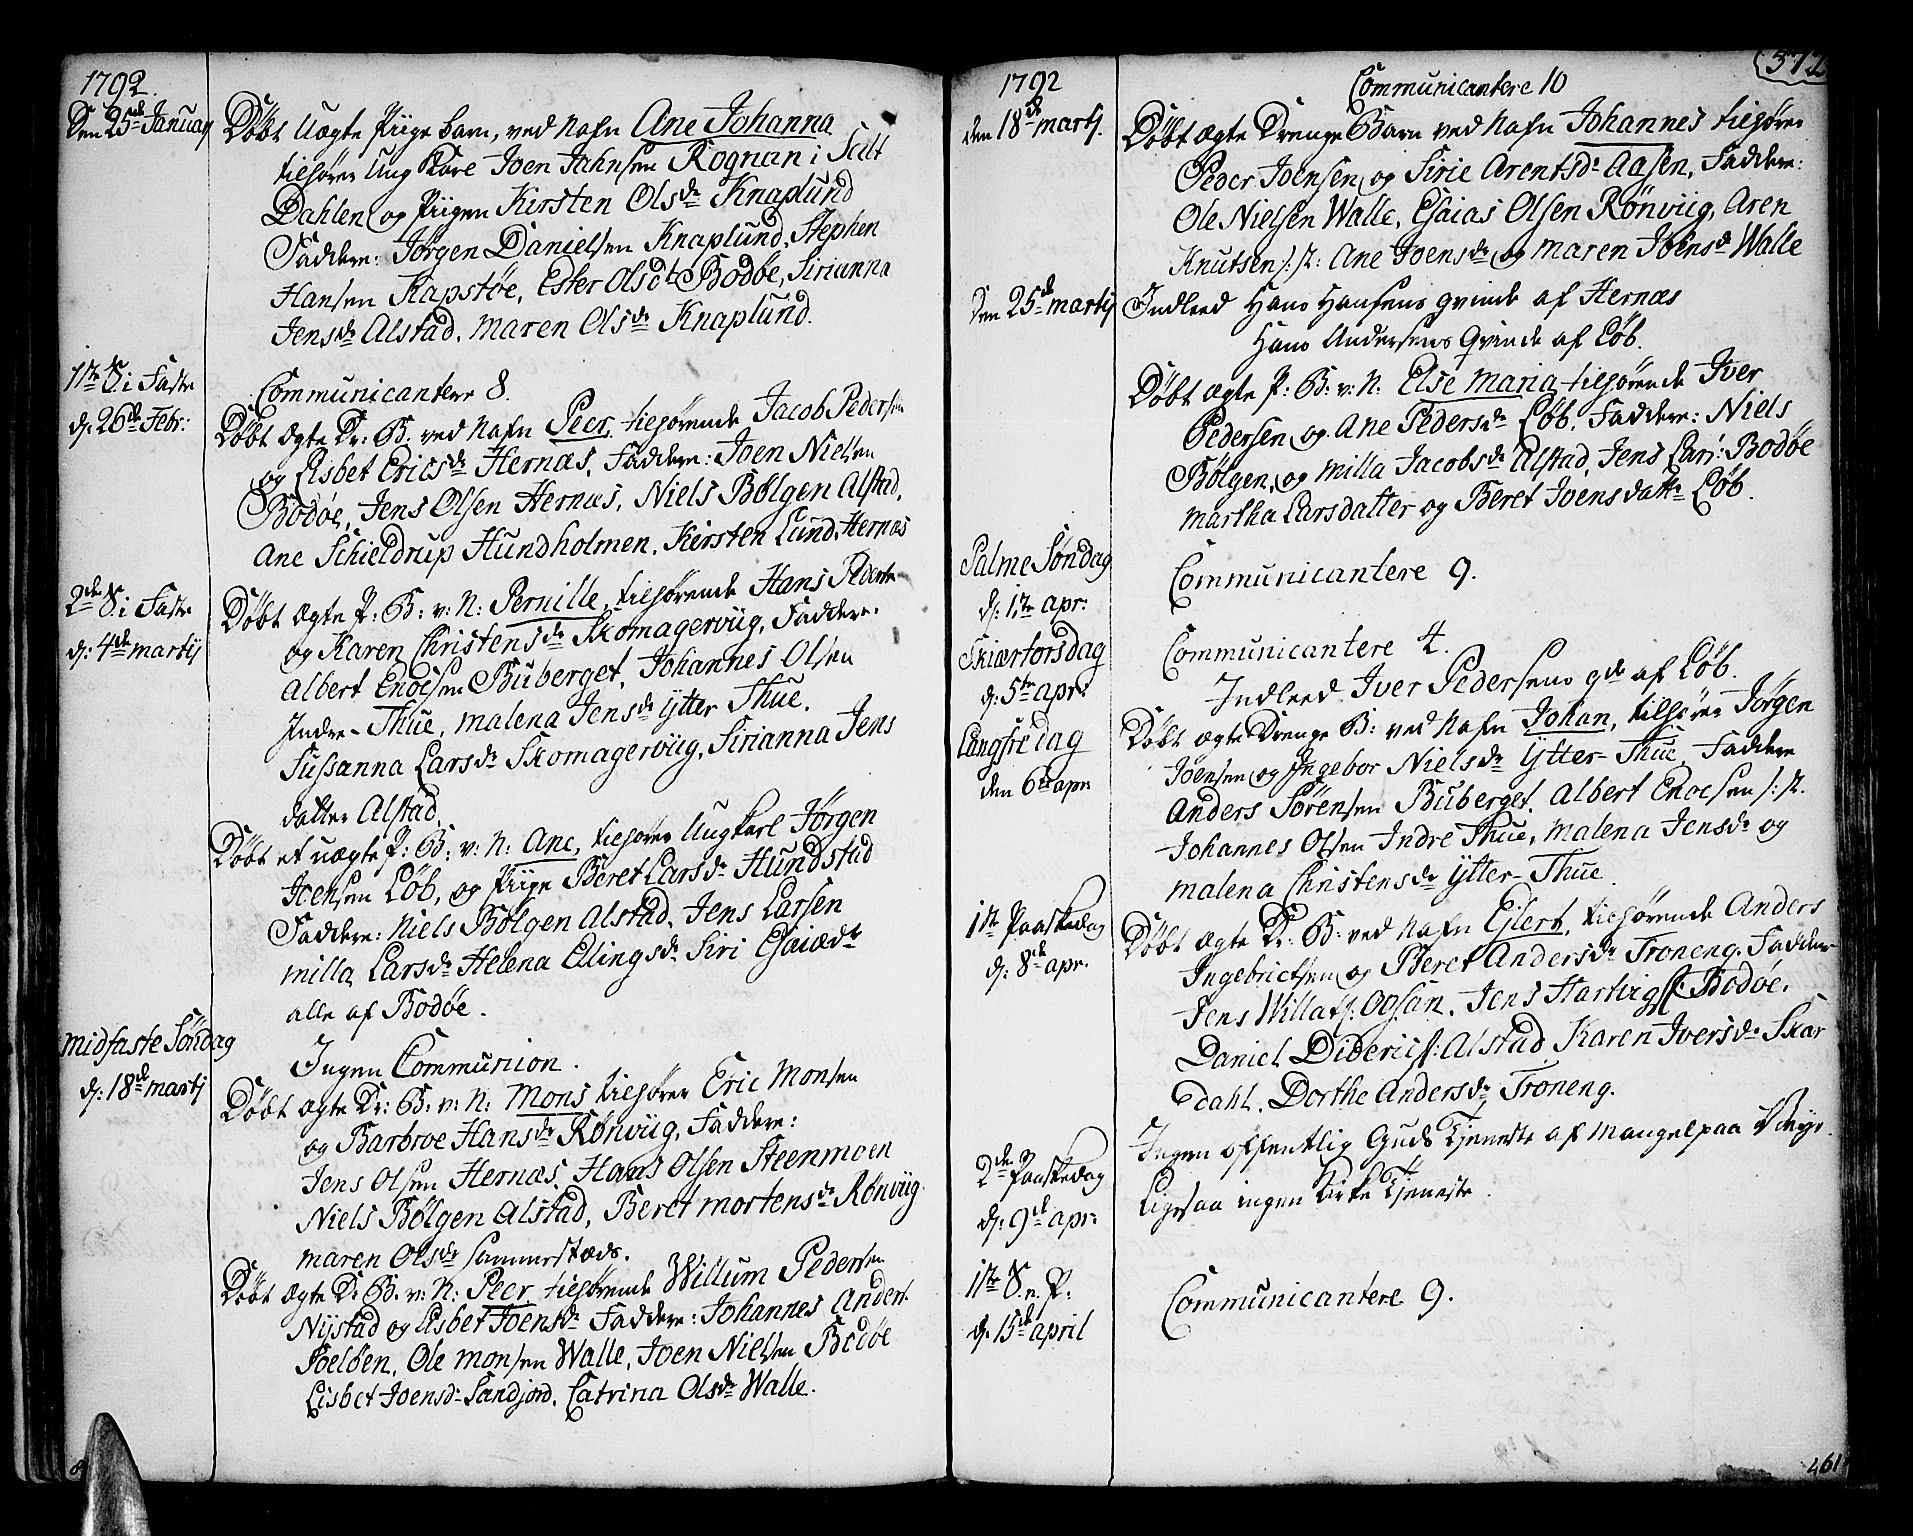 1792.
Den 25de Januarj
Døbt Uægte Piige barn, ved Nafn Ane Johanna
tilhører Ung Karl Joen Jahnsen Rognan i Salt
Dahlen og Piigen Kirsten Olsdr Knaplund
Faddere: Jørgen Danielsen Knaplund, Stephen
Hansen Kapstøe, Ester Olsdt Bodøe, Sirianna
Jensdr Alstad, Maren Olsdr Knaplund.
1ste S. i Faste
d: 26de Febr:
Communicantere 8.
Døbt Ægte Dr: B. ved Nafn Peer, tilhørende Jacob Pedersen
og Elsbet Ericsdr Hernæs, Faddere: Joen Nielsen
Bodøe, Jens Olsen Hernæs, Niels Bølgen Alstad,
Ane Schieldrup Hundholmen, Kirsten Lund, Hernæs
2de S. i Faste
d: 4de Martij
Døbt Ægte P: B: v: N: Pernille, tilhørende Hans Peders
og Karen Christensdr Skomagerviig, Faddere:
Albert Enocsen Buberget, Johannes Olsen
Indre-Thue, Malena Jensdr Ytter Thue,
Sussanna Larsdr Skomagerviig, Sirianna Jens
datter Alstad.
Døbt et uægte P: B: v: N: Ane, tilhører Ungkarl Jørgen
Joensen Løb, og Piige Beret Larsdr Hundstad
Faddere: Niels Bølgen Alstad, Jens Larsen
Milla Larsdr Helena Elingsdr Siri Esaiædr
alle af Bodøe.
Midfaste Søndag
d: 18de Martj
Ingen Communion.
Døbt ægte Dr: B: v: N: Mons tilhører Eric Monsen
og Barbroe Hansdr Rønviig, Faddere:
Jens Olsen Hernæs, Hans Olsen Steenmoen
Niels Bølgen Alstad, Beret Mortensdr Rønviig
Maren Olsdr sammestæds.
Døbt Ægte D: B. v: N: Peer tilhørende Willum Pedersen
Nijstad og Elsbet Joensdr Faddere: Johannes Anders
Soelöen, Ole Monsen Walle, Joen Nielsen Bodøe
Lisbet Joensdr Sandjord, Catrina Olsdr Walle.
1792
den 18de Martj.
Communicantere 10
Døbt ægte Drenge Barn ved Nafn Johannes tilhører
Peder Joensen og Sirie Arentsdr Aasen, Faddere:
Ole Nielsen Walle, Esaias Olsen Rønviig, Aren
Knutsen /: st: Ane Joensdr og Maren Joensdr Walle
Den 25de Martij
Indleed Hans Hansens Qvinde af Hernæs
Hans Andersens Qvinde af Løb.
Døbt ægte P: B: v: N: Else Maria tilhørende Iver
Pedersen og Ane Pedersdr Løb. Faddere: Niels
Bølgen, og Milla Jacobsdr Alstad, Jens Lars: Bodøe
Martha Larsdatter og Beret Joensdattr Løb.
Palme Søndag
d: 1ste apr:
Communicantere 9.
Skiærtorsdag
d: 5te apr:
Communicantere 4.
Indleed Iver Pedersens qde af Løb.
Langfredag
den 6te apr
Døbt ægte Drenge B: ved Nafn Johan, tilhører Jørgen
Joensen og Ingebor Nielsdr Ytter-Thue, Faddere
Anders Sörensen Buberget, Albert Enocsen /: st.
Johannes Olsen Indre Thue, Malena Jensdr og
Malena Christensdr Ytter-Thue.
1ste Paaskedag
d: 8de apr.
Døbt Ægte Dr: B: ved Nafn Ejlert, tilhørende Anders
Ingebrictsen og Beret Andersdr Troneng. Faddere
Jens Willats: Opsan, Jens Hartvigss: Bodøe,
Daniel Diderics: Alstad, Karen Iversdr Skar
dahl, Dorthe Andersdr Troneng.
2den Paaskedag
d: 9de apr:
Ingen offentlig Guds Tjeneste af Mangel paa
Ligesaa ingen Kirke Tjeneste.
1ste S. e. P:
d: 15de april
Communicantere 9.
461